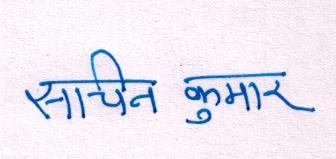 साचिन कुमार